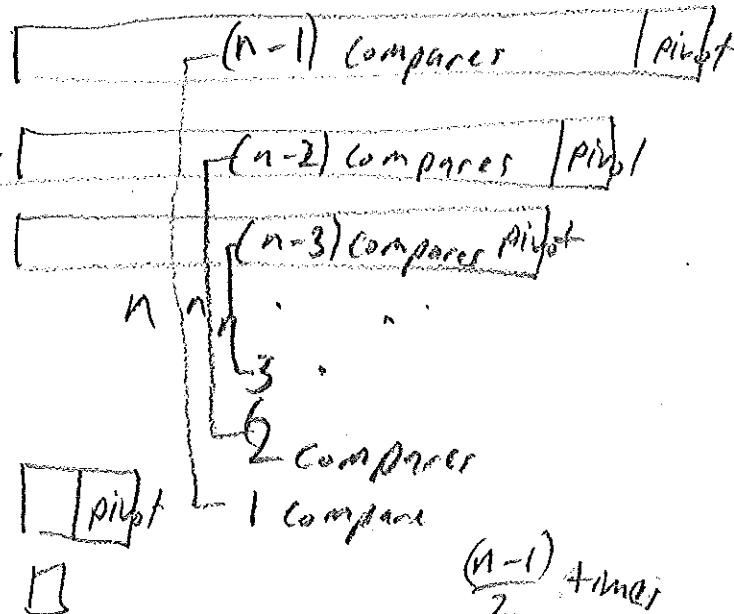 (n-1) compares pivot
(n-2) compares pivot
(n-3) compares pivot
n n n
3
2 compares
pivot 1 compare
(n-1)/2 times